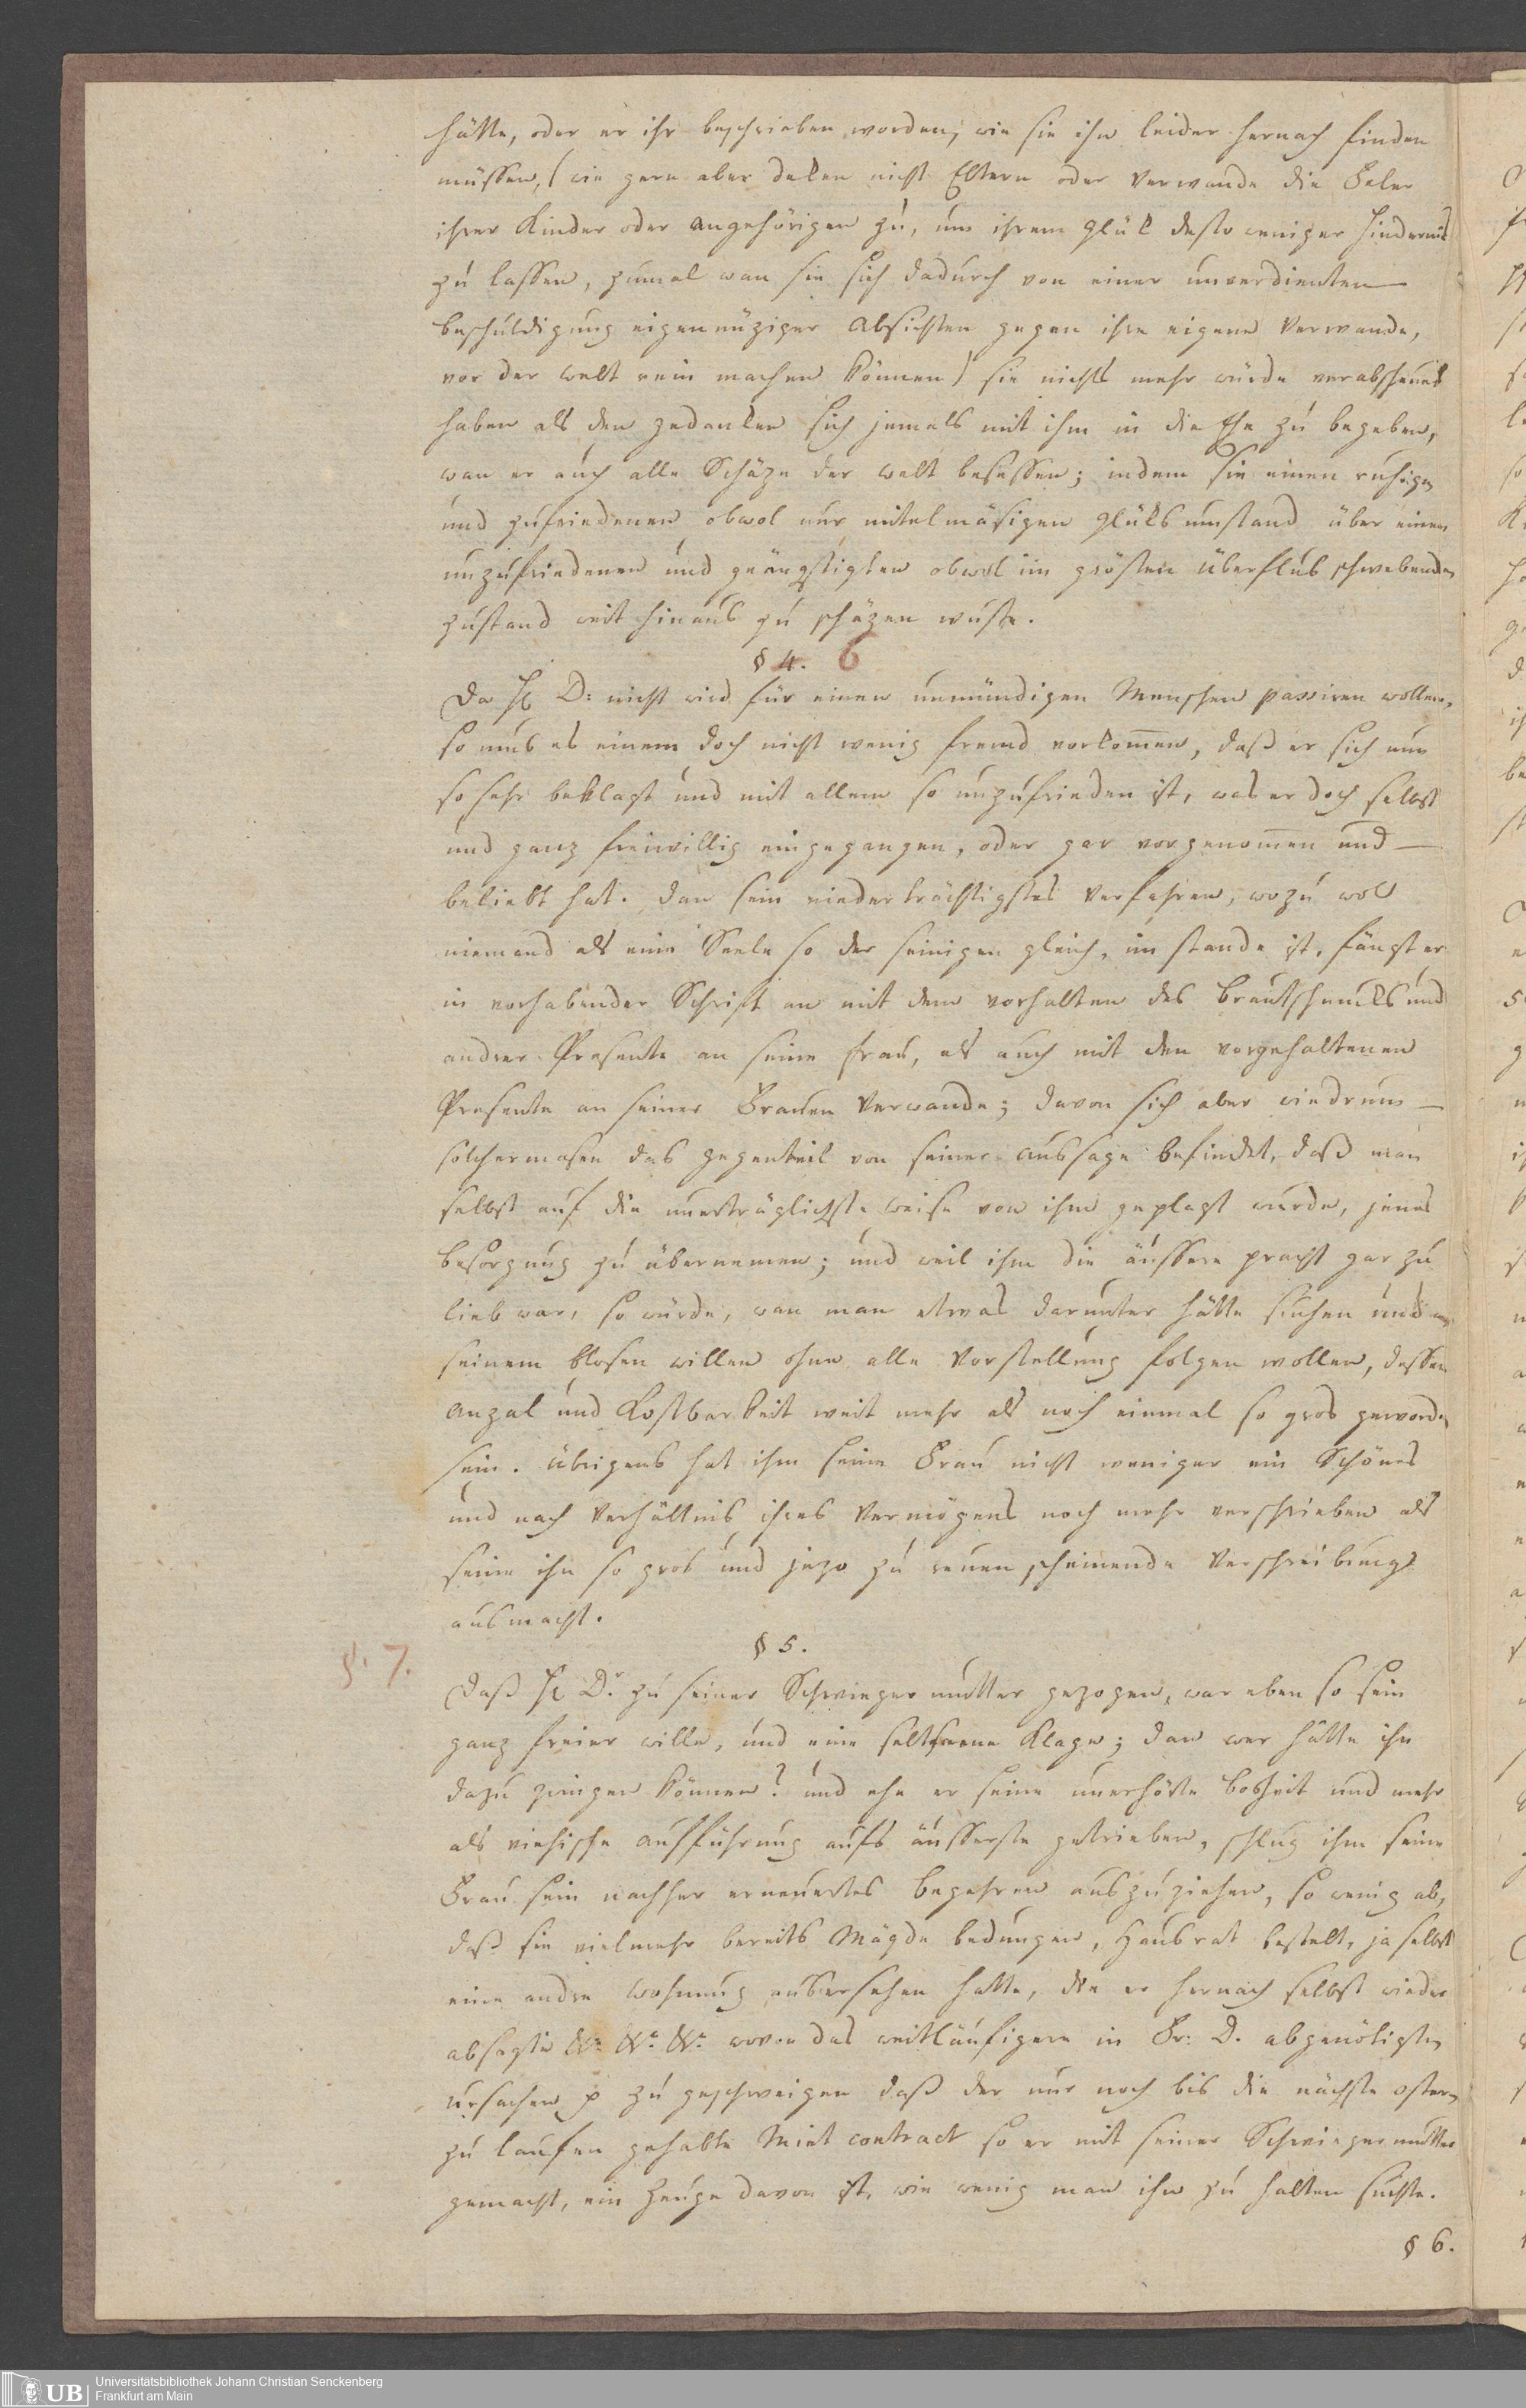 hätte, oder er ihr beschrieben worden, wie sie ihn leider hernach finden
müssen, (wie gern aber deken nicht Eltern oder Verwande die Feler
ihrer Kinder oder angehörigen zu, um ihrem glük desto weniger hindernis
zu lassen, zumal wan sie sich dadurch von einer unverdienten
beschuldigung eigennüziger absichten gegen ihre eigene Verwande,
vor der welt rein machen können) sie nichts mehr würde verabscheuet
haben als den gedanken sich jemals mit ihm in die Ehe zu begeben,
wan er auch alle Schäze der welt besessen; indem sie einen ruhigen
und zufriedenen obwol nur mitelmäsigen glüksumstand über einen
unzufriedenen und geängstigten obwol im grösten überflus schwebenden
zustand weit hinaus zu schäzen wuste.
§ 4. 6
Da H D: nicht wird für einen unmündigen Menschen passiren wollen,
so mus es einem doch nicht wenig fremd vorkom̄en, daß er sich nun
so sehr beklagt und mit allem so unzufrieden ist, was er doch selbst
und ganz freiwillig eingegangen, oder gar vorgenom̄en und
beliebt hat. dan sein niederträchtigstes Verfahren, wozu wol
niemand als eine Seele so der seinigen gleich, im stande ist, fängt er
in vorhabender Schrift an mit dem vorhalten des brautschmuks und
andrer Presente an seine frau, als auch mit den vorgehaltenen
Presente an seiner Frauen Verwande; davon sich aber wiedrum
solchermasen das gegenteil von seiner aussage befindet, daß man
selbst auf die unerträglichste weise von ihm geplagt wurde, jenes
besorgung zu übernemen; und weil ihm die äussere pracht gar zu
lieb war, so würde, wan man etwas darunter hätte suchen und
seinem blosen willen ohne alle Vorstellung folgen wollen, dessen
anzal und Kostbarkeit weit mehr als noch einmal so gros geworden
sein. übrigens hat ihm seine Frau nicht weniger ein Schönes
und nach Verhältnis ihres Vermögens noch mehr verschrieben als
seine ihn so gros und jezo zu reuen scheinende Verschreibung
ausmacht.
§ 5.
§. 7.
Daß H Dr zu seiner Schwiegermutter gezogen, war eben so sein
ganz freier wille, und eine seltsame Klage; dan wer hätte ihn
dazu zwingen können? und ehe er seine unerhörte bosheit und mehr
als viehische aufführung aufs äusserste getrieben, schlug ihm seine
Frau sein nachher erneuertes begehren auszuziehen, so wenig ab,
daß sie vielmehr bereits Mägde bedungen, Hausrat bestelt, ja selbst
eine andre wohnung ausersehen hatte, die er hernach selbst wieder
absagte &c &c &c wovon das weitläufigere in Fr: D. abgenötigten
ursachen p zu geschweigen daß der nur noch bis die nächste ostern
zu laufen gehabte Mietcontract so er mit seiner Schwiegermutter
gemacht, ein Zeuge davon ist, wie wenig man ihn zu halten suchte.
§ 6.
UB
Universitätsbibliothek Johann Christian Senckenberg
Frankfurt am Main